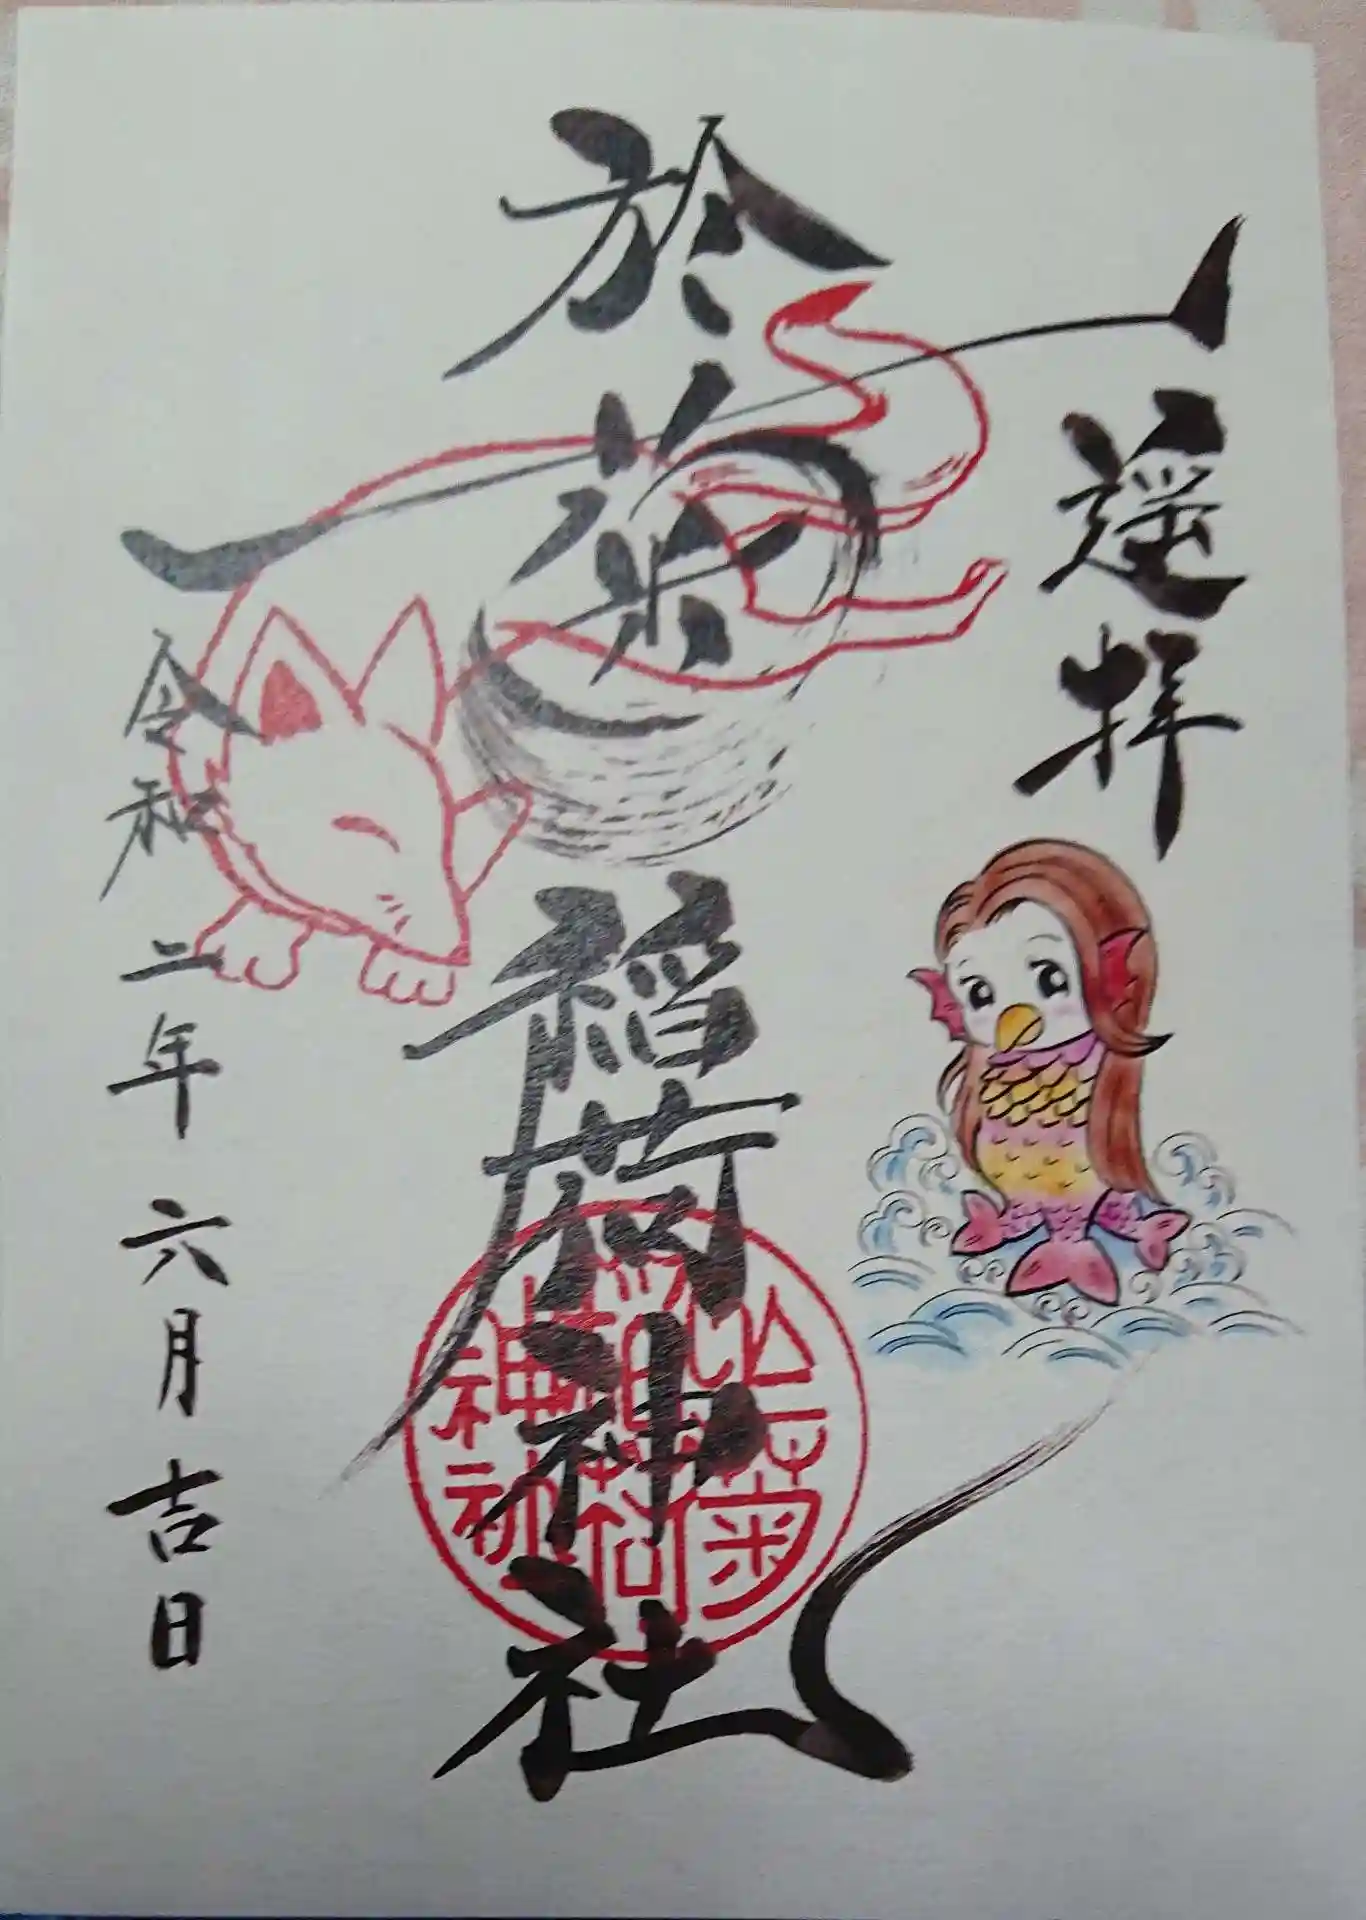 遥拝
於菊稲荷神社
於菊稲荷神社
令和二年六月吉日